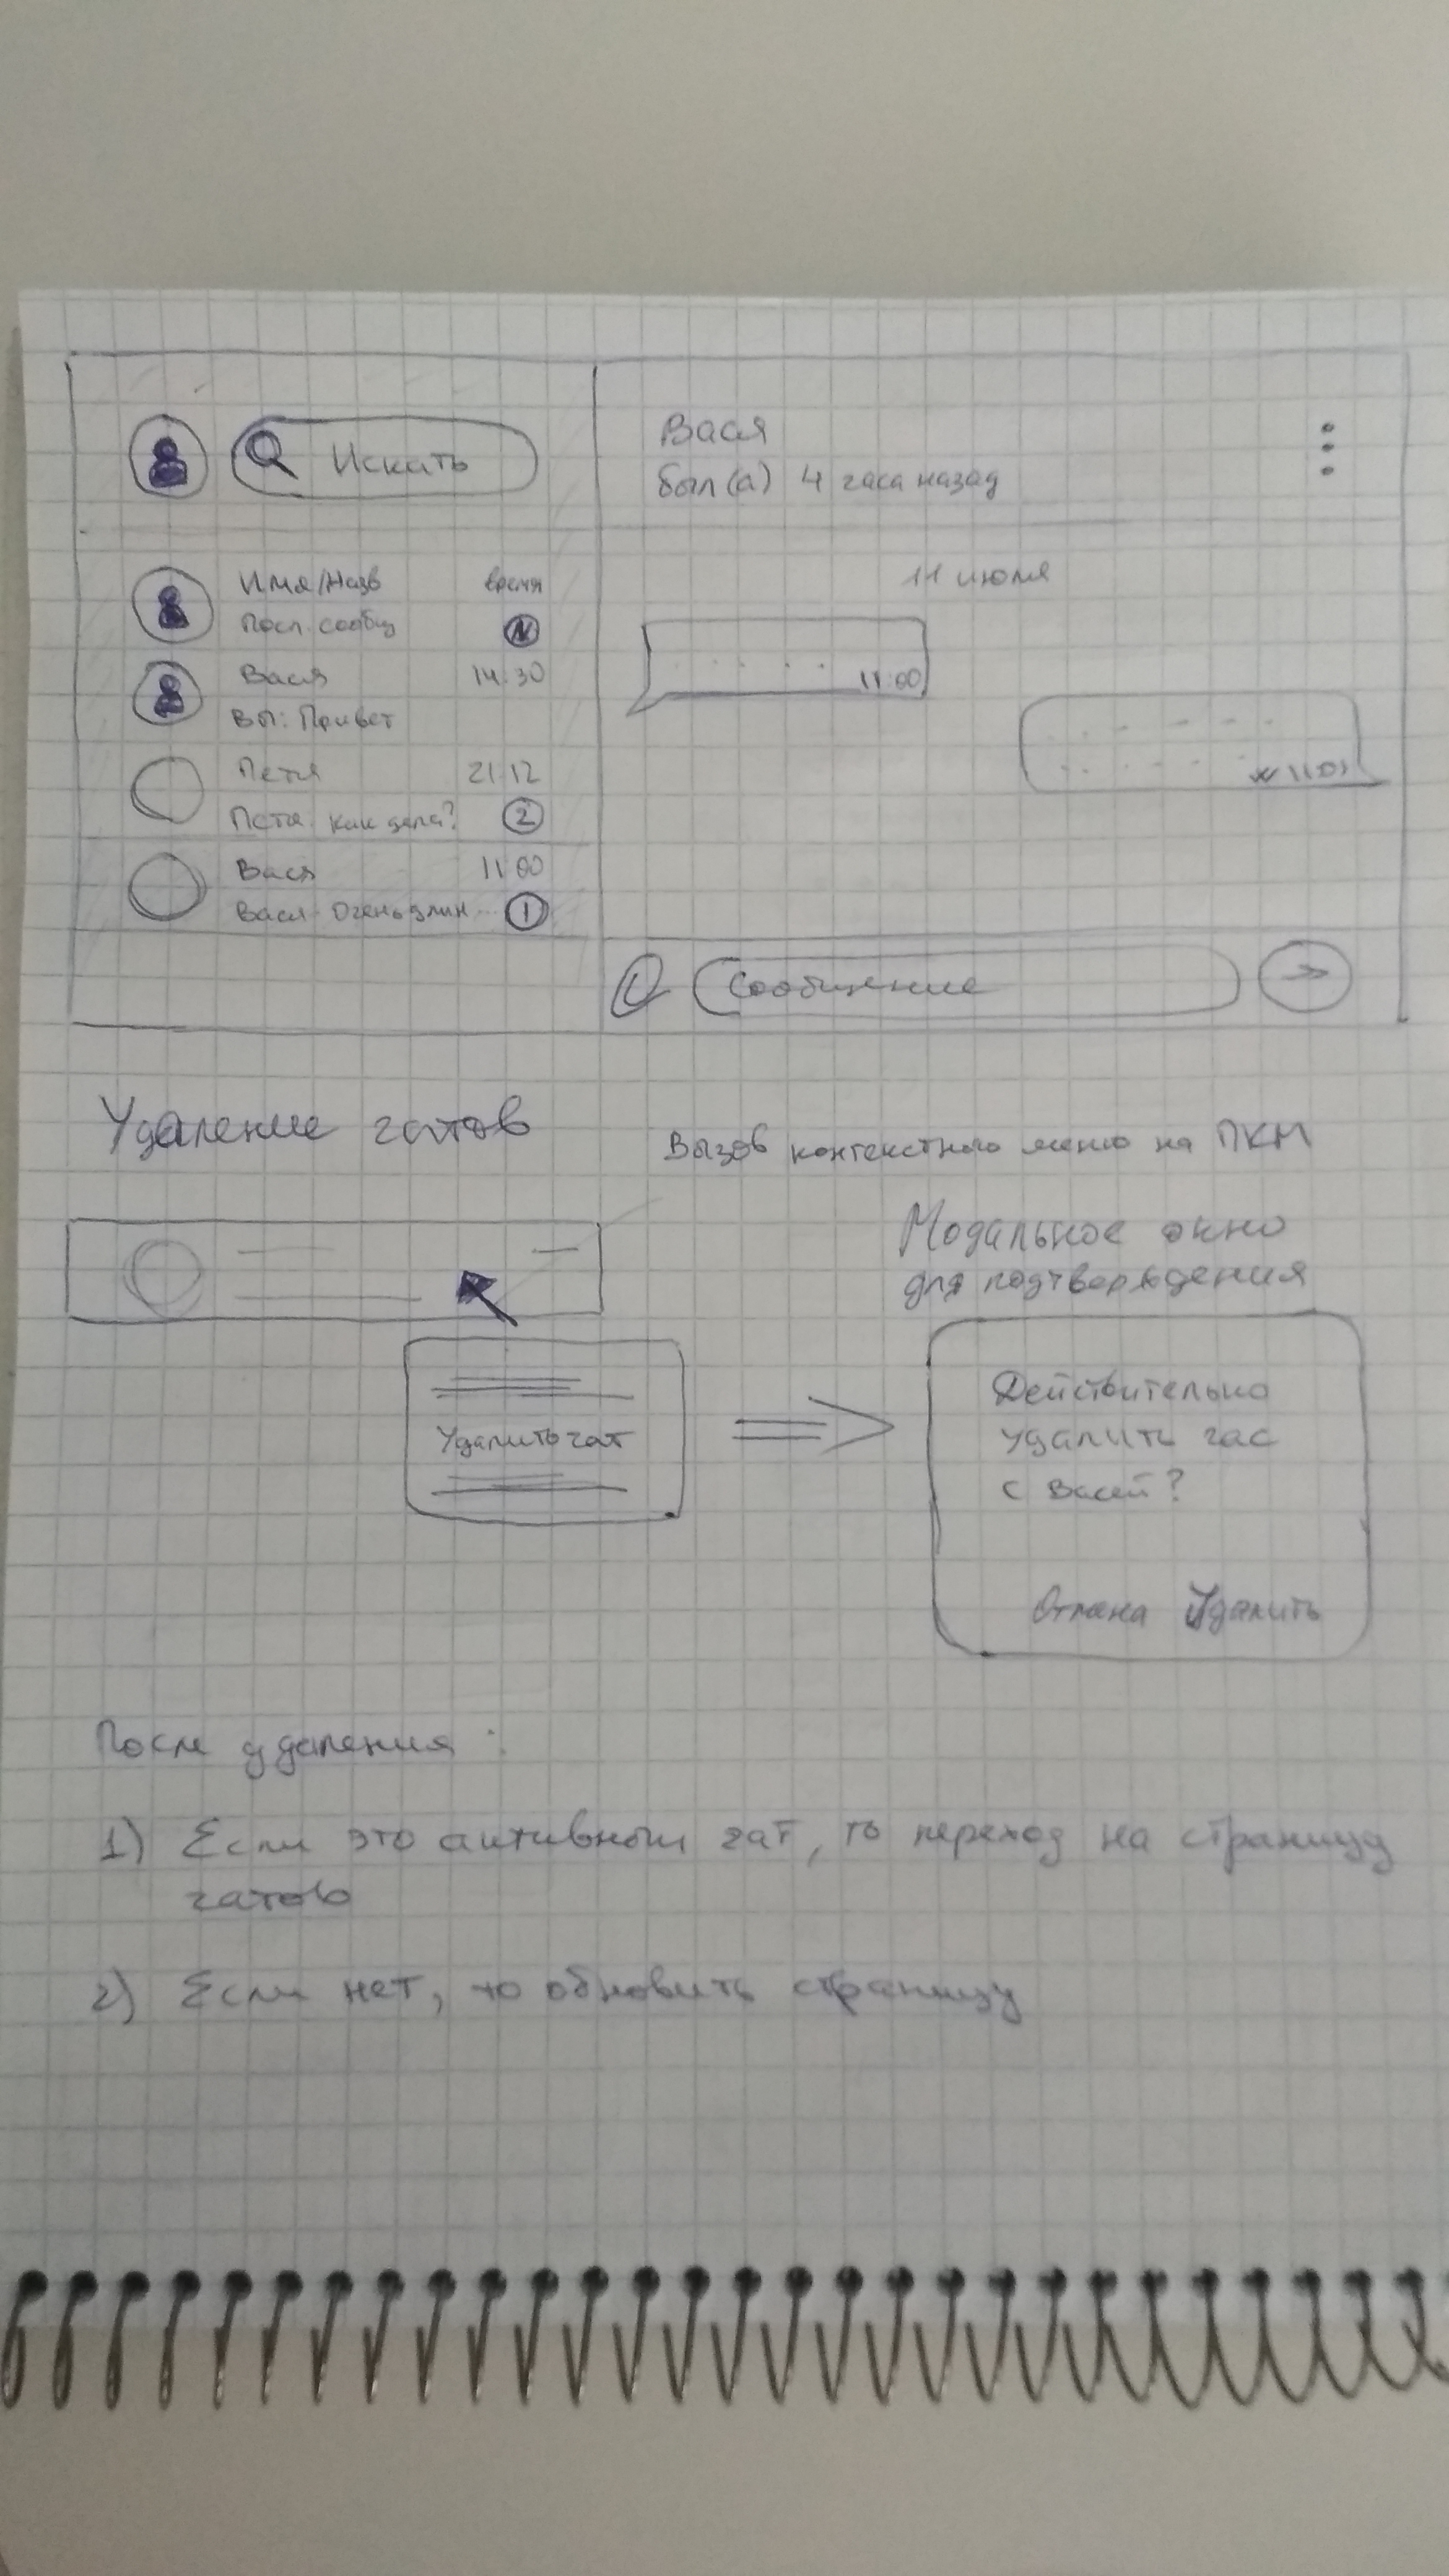 Искать
Имя/Назв время
Посл. сообщ N
Вася 14:30
Вы: Привет
Петя 21:12
Петя: как дела? 2
Вася 11:00
Вася: Очень длин... 1
Вася
был(а) 4 часа назад
11 июля
11:00
11:01
Сообщение
Удаление чатов
Вызов контекстного меню на ПКМ
Удалить чат
Модальное окно
для подтверждения
Действительно
удалить час
с Васей?
Отмена Удалить
После удаления:
1) Если это активный чат, то переход на страницу
чатов
2) Если нет, то обновить страницу